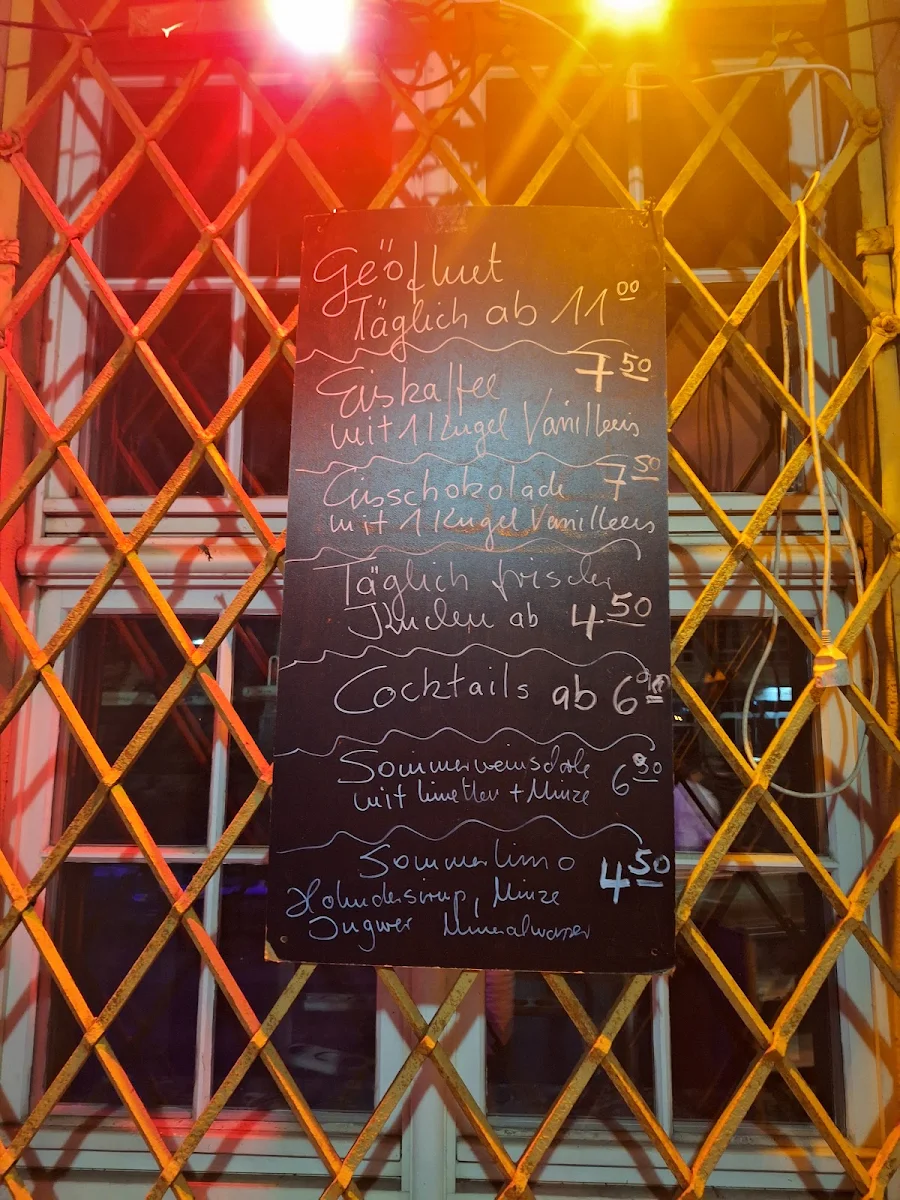 Geöffnet
Täglich ab 11 00
Eiskaffee 7 50
mit 1 Kugel Vanilleeis
Eisschokolade 7 50
mit 1 Kugel Vanilleeis
Täglich frischer
Kuchen ab 4.50
Cocktails ab 6
Sommerweinschorle
mit Limetten + Minze 6
Sommerlimo 4 50
Holundersirup, Minze
Ingwer Mineralwasser